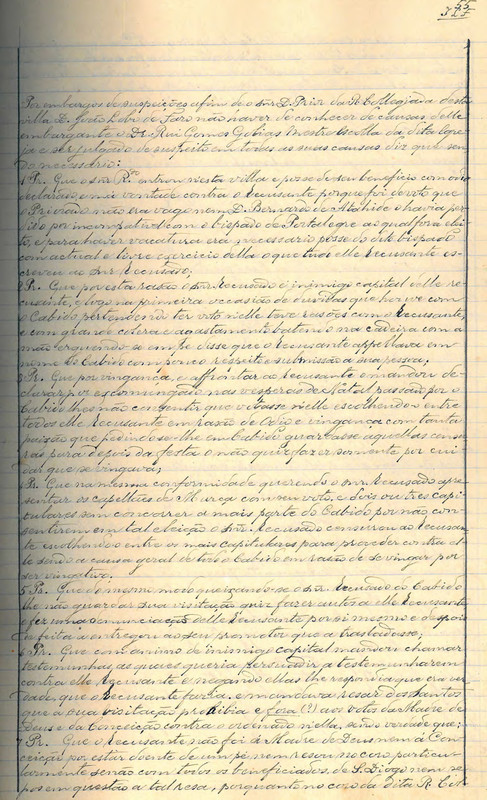 355
325
Por embargos de suspeições afim de o snr. D. Prior da R. Collegiada desta
villa D. João Lobo de Faro não haver de conhecer de causas delle
embargante o Dr. Rui Gomes Golias Mestre Escolla da dita egre
ja e ser julgado de suspeito em todas as suas causas diz que sen
do necessario:
1 Pr. Que o snr. R. entrou nesta villa e posse de seu beneficio com odio
declarado e má vontade contra o Recusante porque foi de voto que
o Priorado não era vago nem D. Bernardo de Atahide o havia per
dido por incompativel com o bispado de Portalegre ao qual fora elei
to, e para haver vacatura era necessario posse do dito bispado
com actual e livre exercicio della o que tudo elle Recusante es
creveu ao snr. Recusado;
2 Pr. Que por esta razão o snr. Recusado é inimigo capital delle re
cusante, e logo na primeira occasião de duvidas que houve com
o Cabido pertendendo ter voto nelle teve rasões com o Recusante,
e com grande colera e agastamento batendo na cadeira com a
mão erguendo-se em pé disse que o Recusante appellava em
nome do Cabido com pouco respeito e submissão a sua pessoa;
3 Pr. Que por vingança, e affrontar ao Recusante o mandou de
clarar por escommungado nas vesperas de Natal passado por o
Cabido lhes não consentir que votasse nelle escolhendo-o entre
todos elle Recusante em razão de odio e vingança com tanta
paixão que pedindo-se-lhe em Cabido guardasse aquellas censu
ras para depois da festa o não quiz fazer somente por cui
dar que se vingava;
4 Pr. Que na mesma conformidade querendo o snr. Recusado apre
sentar os capellães de Murça com seu voto, e dois ou tres capi
tulares sem concorrer a mais parte do Cabido por não con
sentirem em tal eleição o snr. Recusado censurou ao Recusan
te escolhendo-o entre os mais capitulares para proceder contra el
le sendo a causa geral de todo o Cabido em rasão de se vingar por
ser vingativo.
5 Pr. Que do mesmo modo queixando-se o snr. Recusado do Cabido
lhe não guardar sua visitação quiz fazer autos a elle Recusante
e fez uma denunciação delle Recusante por si mesmo e depois
de feita a entregou ao seu promotor que a trasladasse;
6 Pr. Que com animo de inimigo capital mandou chamar
testemunhas, as quaes queria persuadir a testemunharem
contra elle Recusante e negando ellas lhe respondia que era ver
dade que o Recusante fazia e mandava resar dos santos
que a sua visitação prohibia e fora (?) aos votos da Madre de
Deus e da Conceição contra o ordenado nella, sendo verdade que:
7 Pr. Que o Recusante não foi á Madre de Deus nem á Con
ceição por estar doente de um pé nem resou no coro particu
larmente senão com todos os beneficiados, de S. Diogo nem se
pos em questão a tal resa, porquanto no coro da dita R. Col